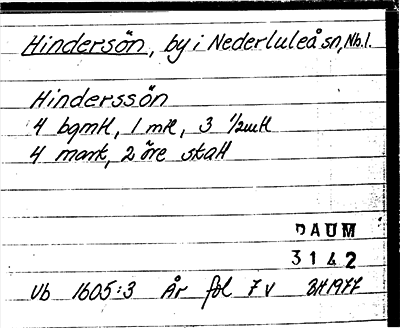 Hindersön, by i Nederluleå sn, Nb.l.
Hinderssön
4 bgmtl, 1 mtl, 3 1/2mtl
4 mark, 2 öre skatt
DAUM
3142
Vb 1605:3 År fol 7v 1977